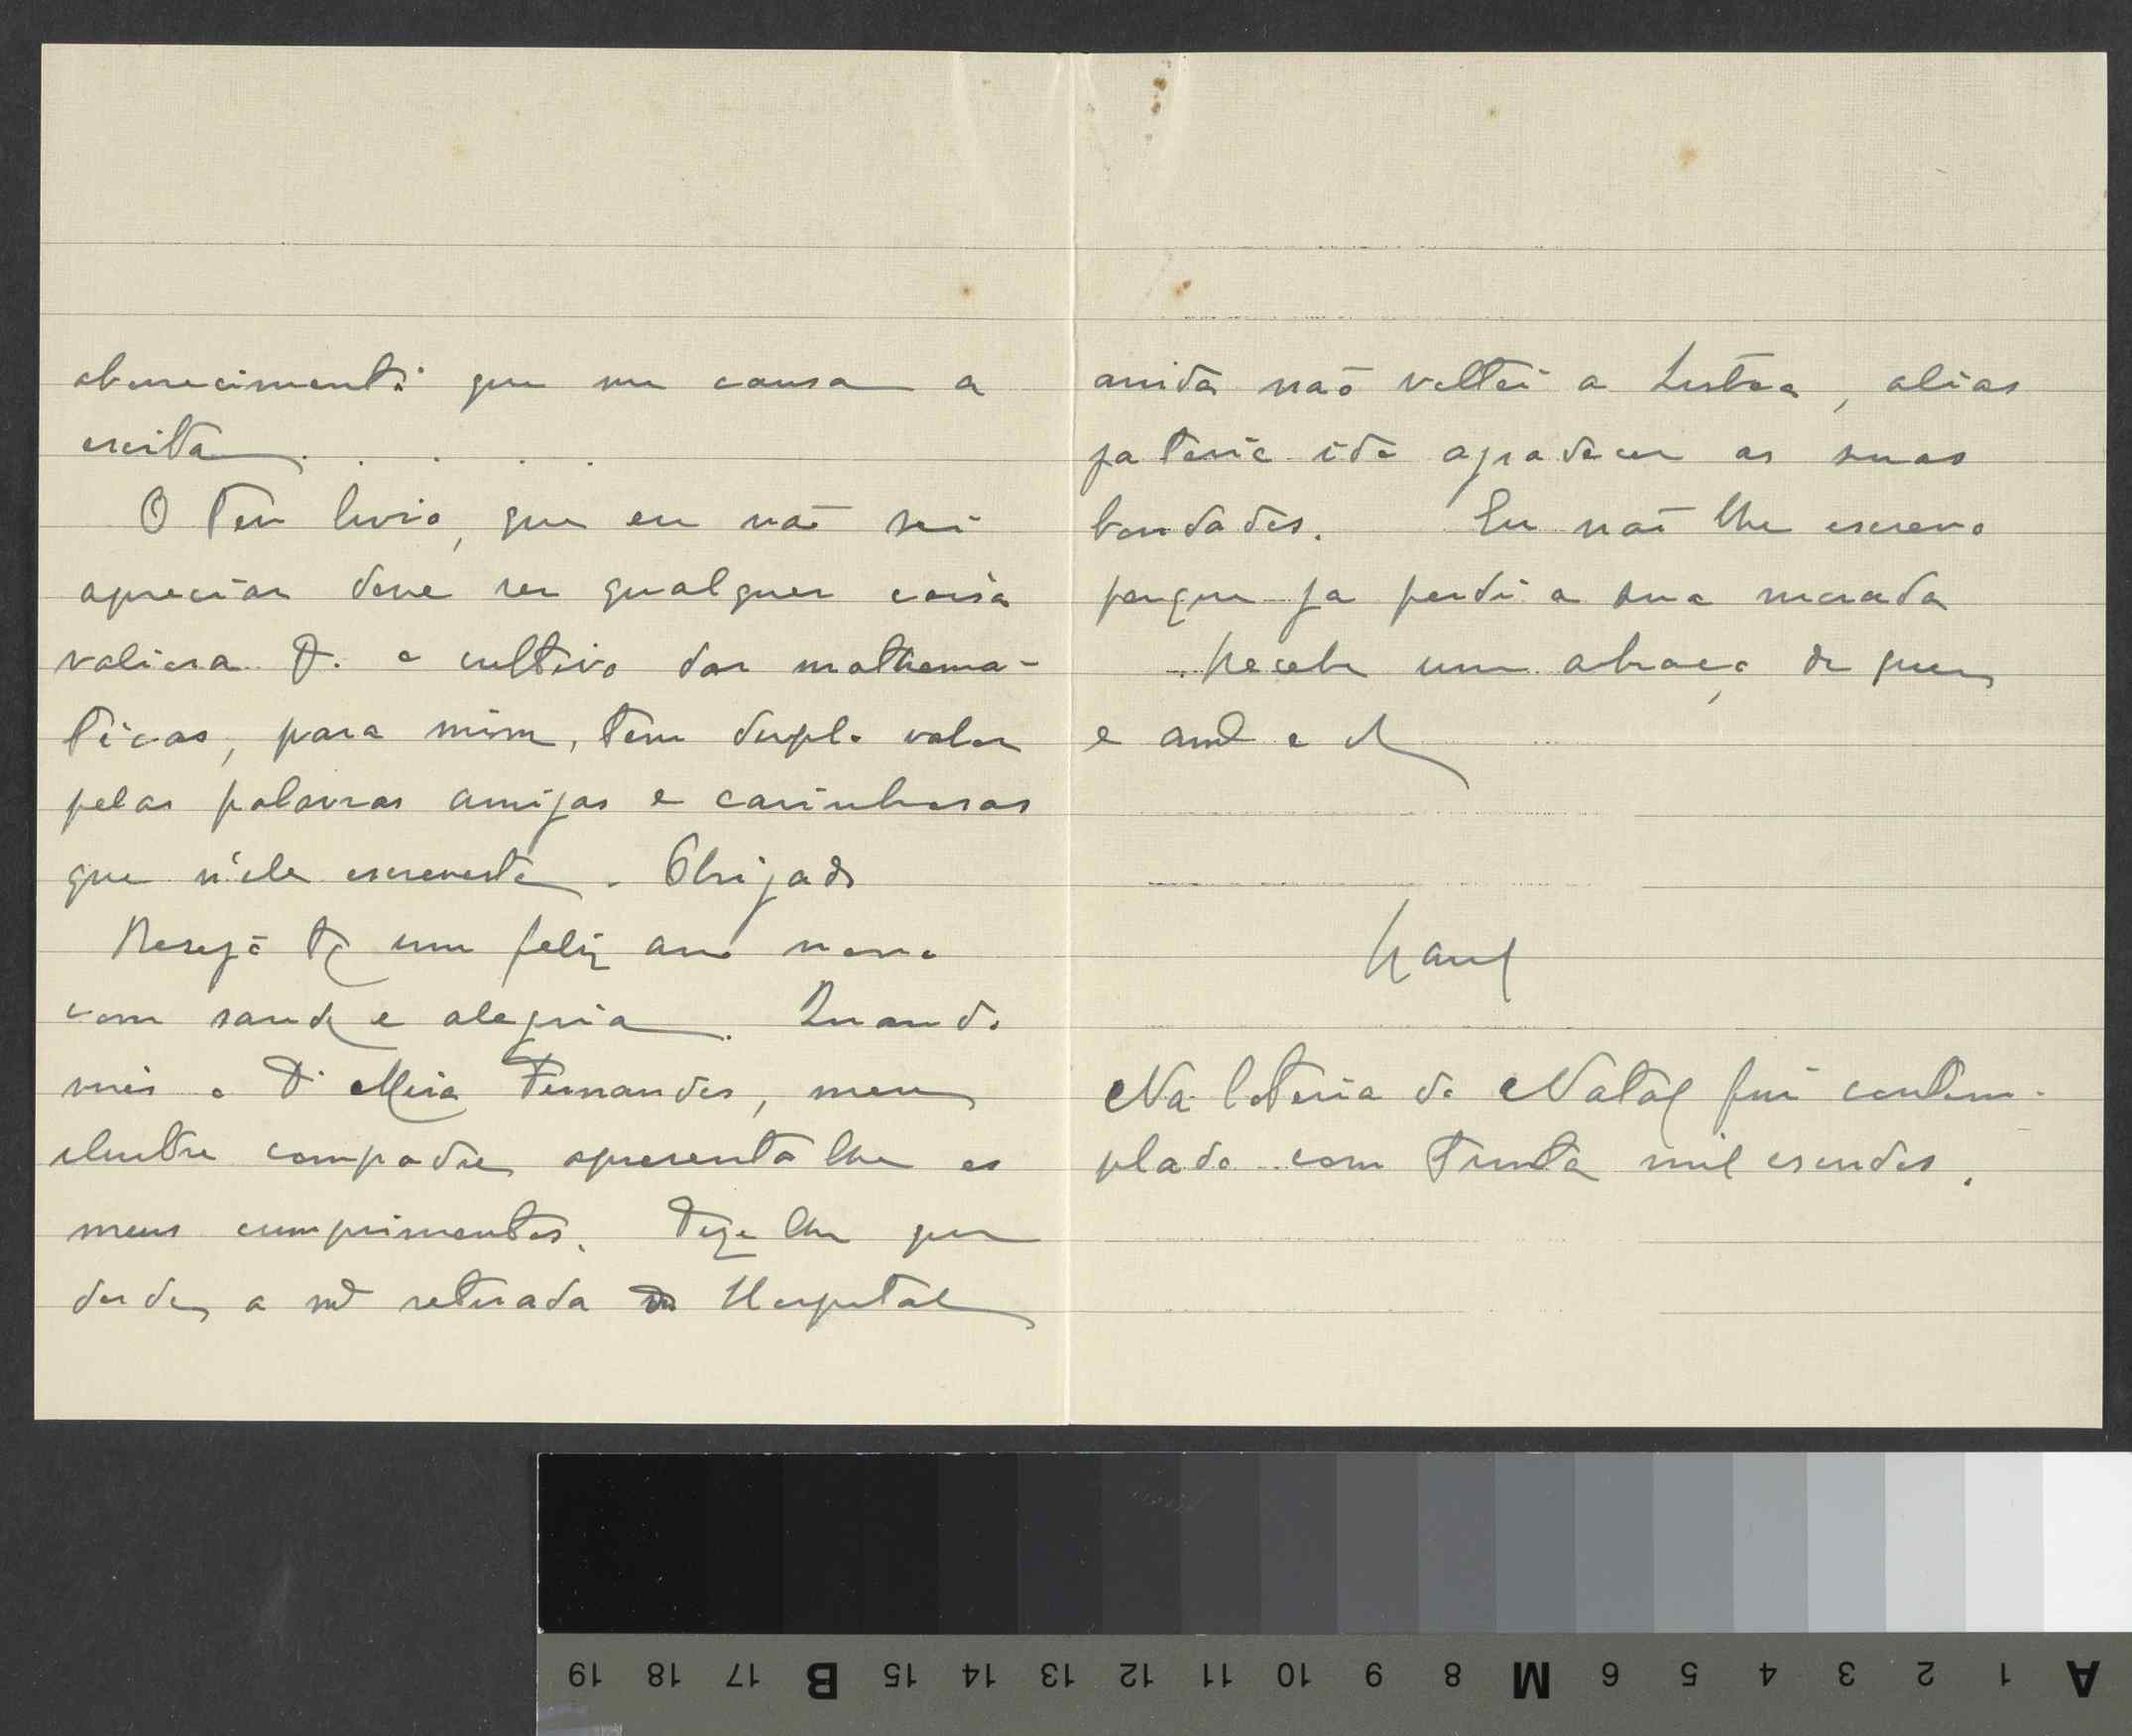 aborrecimento que me causa a
escrita . . . . .
O teu livro, que eu não sei
apreciar deve ser qualquer coisa
valiosa p. o cultivo das mathema-
ticas, para mim, tem duplo valor
pelas palavras amigas e carinhosas
que n'ele escreveste. Obrigado
Desejo te um feliz ano novo
com saude e alegria. Quando
vires o Dr Mira Fernandes, meu
ilustre compadre apresenta lhe os
meus cumprimentos. Dize lhe que
desde a mª retirada do Hospital
ainda não voltei a Lisboa, alias
ja teria ido agradecer as suas
bondades. Eu não lhe escrevo
porque ja perdi a sua morada
Recebe um abraço de quem
e amº e
Raul
Na loteria do Natal fui contem-
plado com trinta mil escudos.
A 1 2 3 4 5 6 M 8 9 10 11 12 13 14 15 B 17 18 19